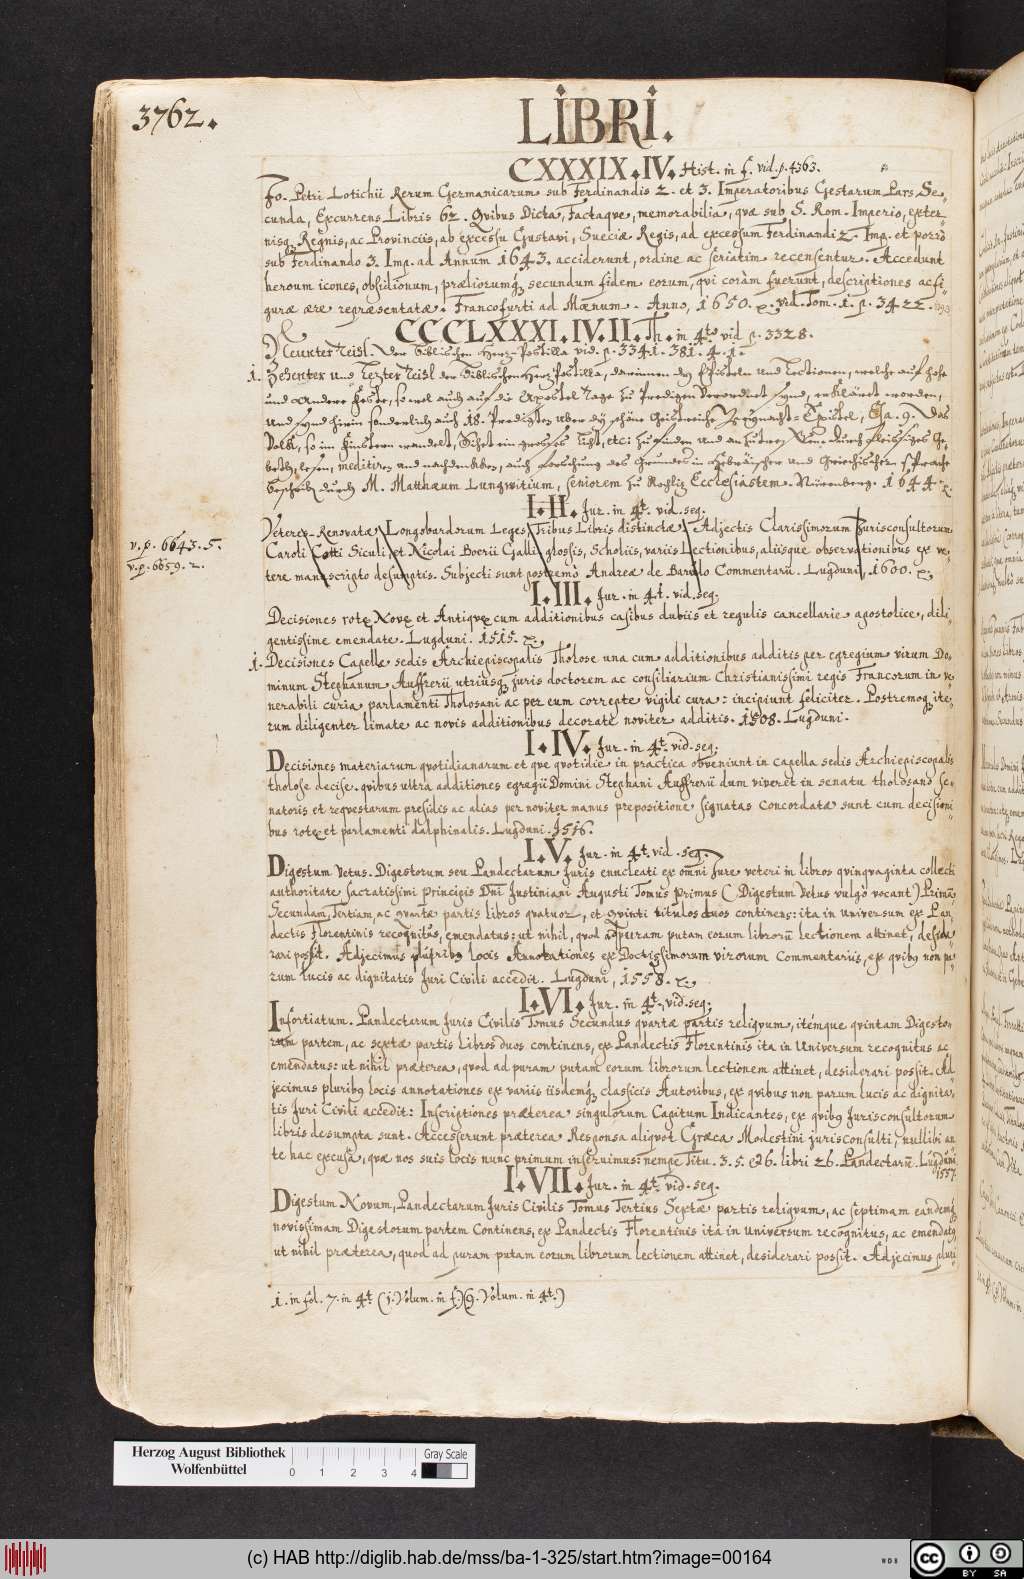 3762.
LIBRI.
CXXXIX.IV. Hist. in f. vid. p. 4363.
Jo. Petri Lotichii Rerum Germanicarum sub Ferdinandis 2. et 3. Imperatoribus Gestarum Pars Se-
cunda, Excurrens Libris 62. Qvibus Dicta, Factaqve, memorabilia, qvæ sub S. Rom. Imperio, exter-
nisq Regnis, ac Provinciis, ab excessu Gustavi, Sueciæ Regis, ad excessum Ferdinandi 2. Imp. et porrò
sub Ferdinando 3. Imp. ad Annum 1643. acciderunt, ordine ac seriatim recensentur. Accedunt
heroum icones, obsidionum, præliorumq́ secundum fidem eorum, qvi coràm fuerunt, descriptiones ac fi-
guræ ære repræsentatæ. Francofurti ad Mœnum. Anno, 1650. vid. Tom. 1. p. 3422.
CCCLXXXI.IV.II. Th. in 4to vid p. 3328.
Neunter Teil. der Biblischen Hertz-Postilla vid. p. 3341. 381. 4. 1.
1. Zehenter und Letzter Teil der Biblischen Hertz Postilla, darinnen die Episteln und Lectionen, welche auf hohe
und andere Feste, so wol auch auf die Apostel Tage zu Predigen Verordnet synd, erklärt worden,
und synd hierin sonderlich auch 18. Predigten uber die schöne Geistreiche Weynacht-Epistel, Esa. 9. Das
Volk, so im finstern wandelt, Sihet ein grosses Licht, etc: zu finden und an zutreffen. durch fleissiges Ge-
beth, lesen, meditiren und nachdenkken, auch forschung des Grundes in Hebräischer und Griechischer Sprache
beschrieben durch M. Matthæum Lungwitium, seniorem zu Rochliz Ecclesiastem. Nürenberg. 1644.
I.II. Jur. in 4t. vid. seq.
Veteres Renovatæ Longobardorum Leges, Tribus Libris distinctæ, Adjectis Clarissimorum Jurisconsultorum
v. p. 6643. 5.
Caroli Cotti Siculi, et Nicolai Boerii Galli glossis, Scholiis, variis Lectionibus, aliisque observationibus ex ve-
v. p. 6659. 2.
tere manuscripto desumptis. Subjecti sunt postremò Andreæ de Barulo Commentarii. Lugduni, 1600.
I.III. Jur. in 4t. vid. seq;
Decisiones rote Nove et Antique cum additionibus casibus dubiis et regulis cancellarie apostolice, dili-
gentissime emendate. Lugduni. 1515.
1. Decisiones Capellæ sedis Archiepiscopalis Tholose una cum additionibus additis per egregium virum Do-
minum Stephanum Auffrerii utriusq juris doctorem ac consiliarium Christianissimi regis Francorum in ve-
nerabili curia parlamenti Tholosani ac per eum correpte vigili cura: incipiunt feliciter. Postremoq ite-
rum diligenter limate ac novis additionibus decorate noviter additis. 1508. Lugduni.
I.IV. Jur. in 4t. vid. seq;
Decisiones materiarum qvotidianarum et qve qvotidie in practica obveniunt in capella sedis Archiepiscopalis
tholose decise. qvibus ultra additiones egregii Domini Stephani Auffrerii dum viveret in senatu tholosano se-
natoris et reqvestarum presidis ac alias per noviter manus prepositione signatas Concordatæ sunt cum decisioni-
bus rote et parlamenti dalphinalis. Lugduni. 1516.
I.V. Jur. in 4t. vid. seq.
Digestum Vetus. Digestorum seu Pandectarum Juris enucleati ex omni Jure veteri in libros qvinqvaginta collecti
authoritate sacratissimi principis Dni Justiniani Augusti Tomus Primus (Digestum Vetus vulgò vocant) Primā
Secundam, Tertiam, ac qvartæ partis libros qvatuor, et qvinti titulos duos continens: ita in universum ex Pan-
dectis Florentinis recognitus, emendatus: ut nihil, qvod ad puram putam eorum librorū lectionem attinet, deside-
rari possit. Adjecimus plurib9 locis Annotationes ex Doctissimorum virorum Commentariis, ex qvib9 non pa-
rum lucis ac dignitatis Juri Civili accedit. Lugduni, 1558.
I.VI. Jur. in 4t. vid. seq;
Infortiatum. Pandectarum Juris Civilis Tomus Secundus qvartæ partis reliqvum, itémque qvintam Digesto-
rum partem, ac sextæ partis libros duos continens, ex Pandectis Florentinis ita in Universum recognitus ac
emendatus: ut nihil præterea, qvod ad puram putam eorum librorum lectionem attinet, desiderari possit. Ad-
jecimus plurib9 locis annotationes ex variis iisdemq́ classicis Autoribus, ex qvibus non parum lucis ac dignita-
tis Juri Civili accedit: Inscriptiones præterea singulorum Capitum Indicantes, ex qvib9 Jurisconsultorum
libris desumpta sunt. Accesserunt præterea Responsa aliqvot Græca Modestini jurisconsulti, nullibi an-
te hac excusa, qvæ nos suis locis nunc primum inseruimus: nempe Titu. 3. 5. e 26. libri 26. Pandectarū. Lugduni
1557.
I.VII. Jur. in 4t. vid. seq.
Digestum Novum, Pandectarum Juris Civilis Tomus Tertius Sextæ partis reliqvum, ac septimam eandemq́
novissimam Digestorum partem Continens, ex Pandectis Florentinis ita in universum recognitus, ac emendat9
ut nihil præterea, quod ad puram putam eorum librorum lectionem attinet, desiderari possit. Adjecimus pluri-
1. in fol. 7. in 4t. (1. Volum. in f.)(9. Volum. in 4t.)
Herzog August Bibliothek
Wolfenbüttel
0 1 2 3 4
Gray Scale
(c) HAB http://diglib.hab.de/mss/ba-1-325/start.htm?image=00164
WDB
cc BY SA